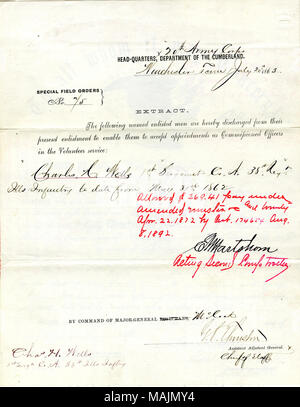 20th Army Corps
HEAD-QUARTERS, DEPARTMENT OF THE CUMBERLAND.
Winchester Tenn July 1863
SPECIAL FIELD ORDERS
No.
EXTRACT.
The following named enlisted men are hereby discharged from their
present enlistment to enable them to accept appointments as Commissioned Officers
in the Volunteer service:
Charles H. Wells 1st Sergeant Co. A. 35th Regt
Ills Infantry to date from 1862
Allowed $ 269.41 pay under
amended muster and bounty
Apr. 22. 1872 by Act. Aug.
8. 1892.
Acting Second Comptroller
BY COMMAND OF MAJOR-GENERAL
Assistant Adjutant General
Chas. H. Wells
1st Sergt Co. A. 35th Ills Infty
alamy
Image ID: MAJMY4
www.alamy.com